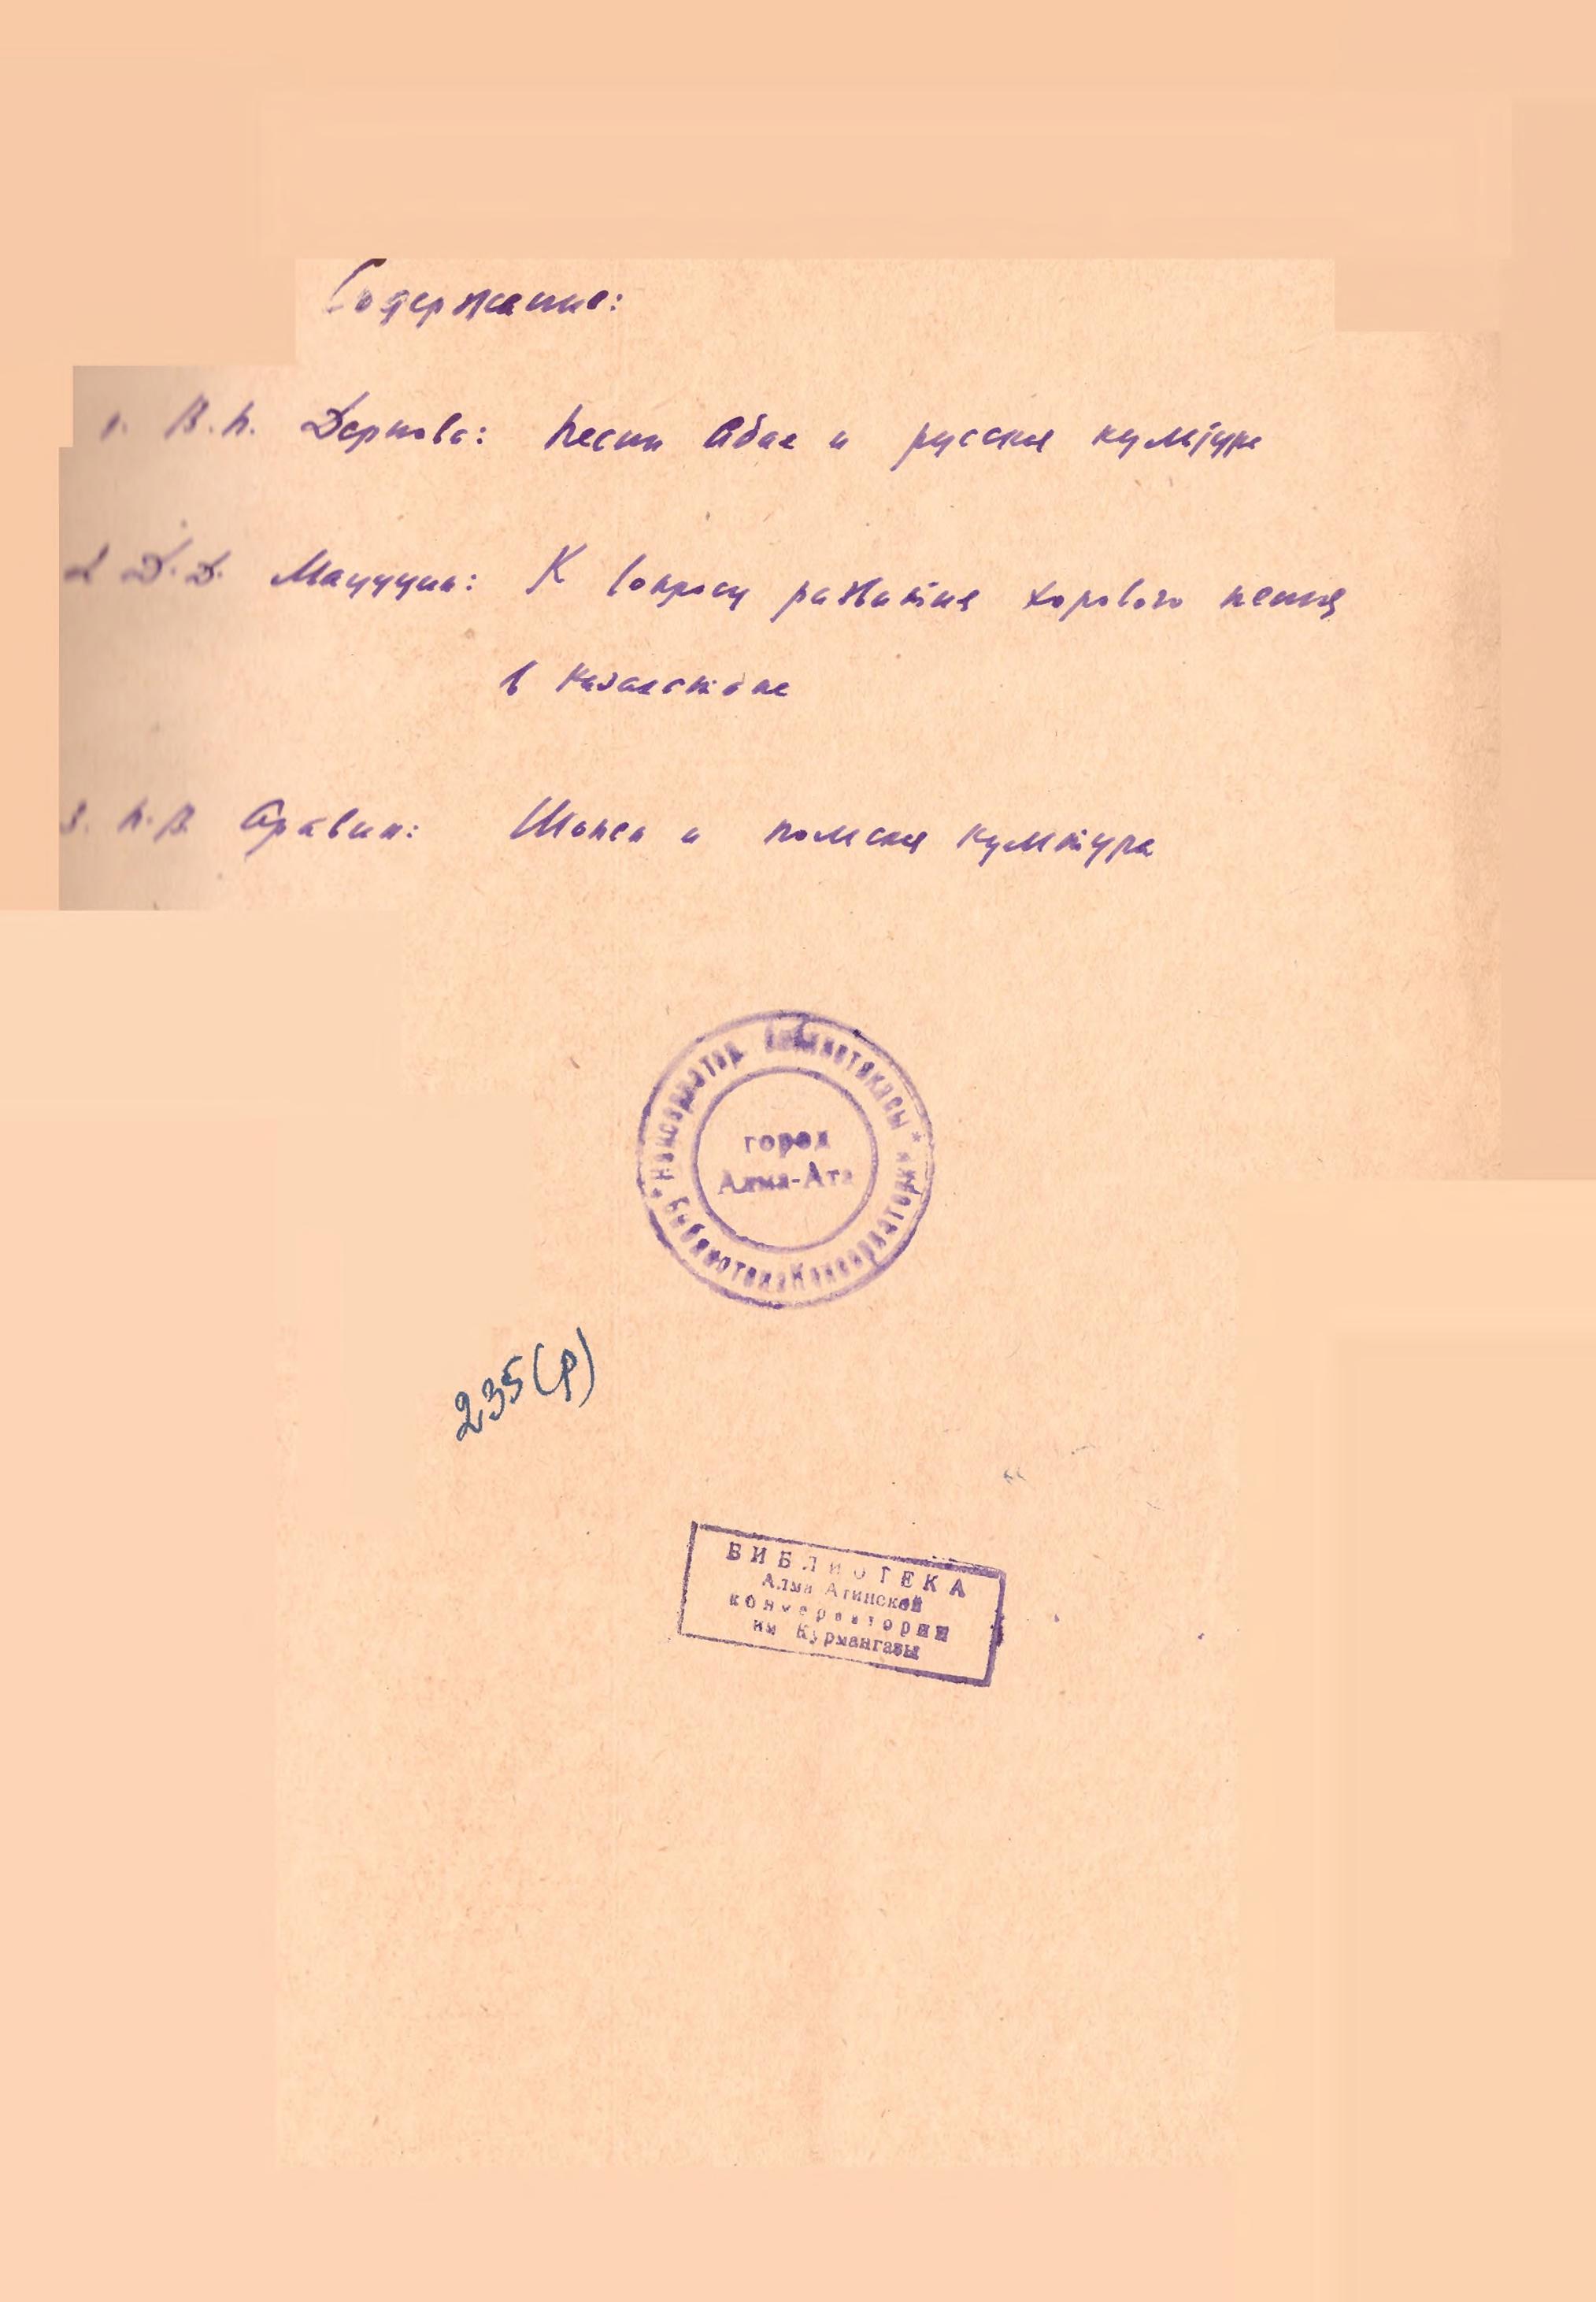 Содержание:
1. В.П. Дернова: Песни Абая и русская культура
2 Д.Д. Мацуцин: К вопросу развития хорового пения
в Казахстане
3. П.В. Аравин: Шопен и польская культура
* Консерватор. библиотекасы *
Библиотека Консерватории
город
Алма-Ата
235(р)
БИБЛИОТЕКА
Алма Атинской
консерватории
им Курмангазы